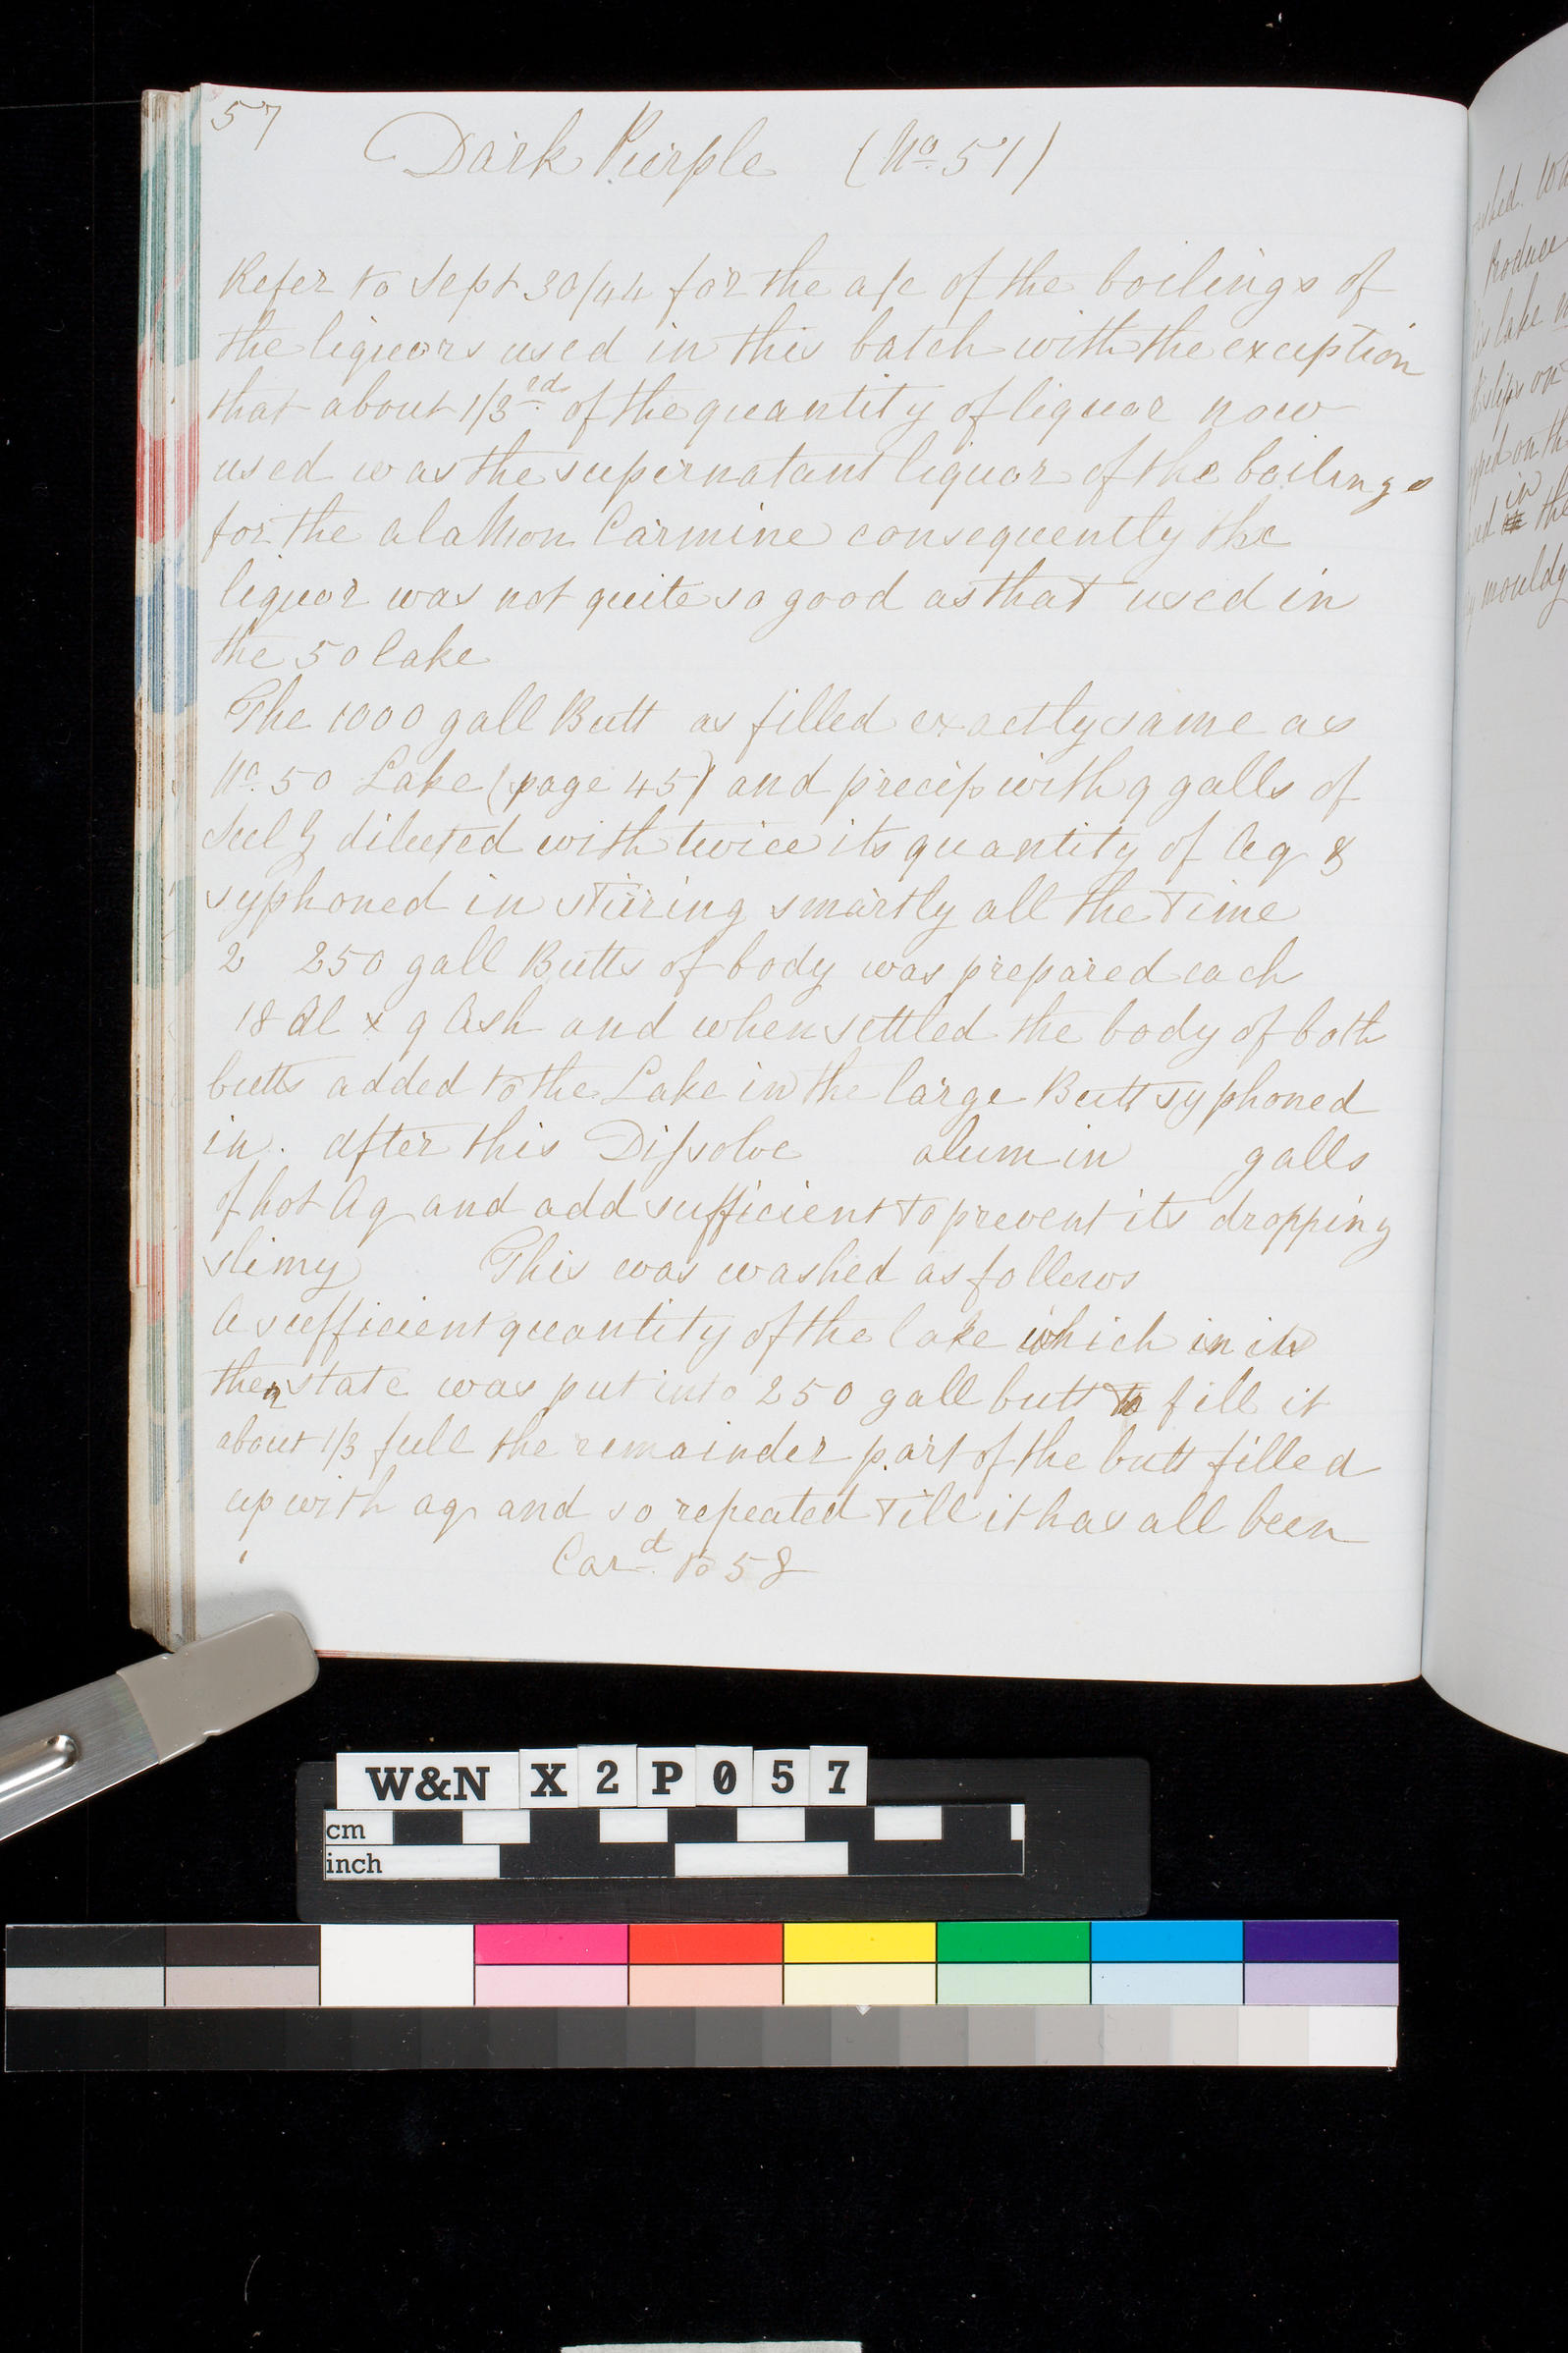 57
Dark Purple (No. 51)
Refer to Sept 30/44 for the a/c of the boilings of
the liquors used in this batch with the exception
that about 1/3rd of the quantity of liquor now
used was the supernatant liquor of the boilings
for the ala Mon Carmine consequently the
liquor was not quite so good as that used in
the 50 lake
The 1000 gall Butt as filled exactly same as
No. 50 Lake (page 45) and precip with 9 galls of
diluted with twice its quantity of Aq &
syphoned in stiring smartly all the time
2 250 gall Butts of body was prepared each
18 Al x 9 Ash and when settled the body of both
butts added to the Lake in the large Butt syphoned
in. after this Dissolve alum in galls
of hot Aq and add sufficient to prevent its dropping
slimy This was washed as follows
A sufficient quantity of the lake which in its
then state was put into 250 gall butt to fill it
about 1/3 full the remainder part of the butt filled
up with aq and so repeated till it has all been
Card. to 58
Produce
lake
slips on
on th
in
the
mouldy
W&N X2P057
cm
inch